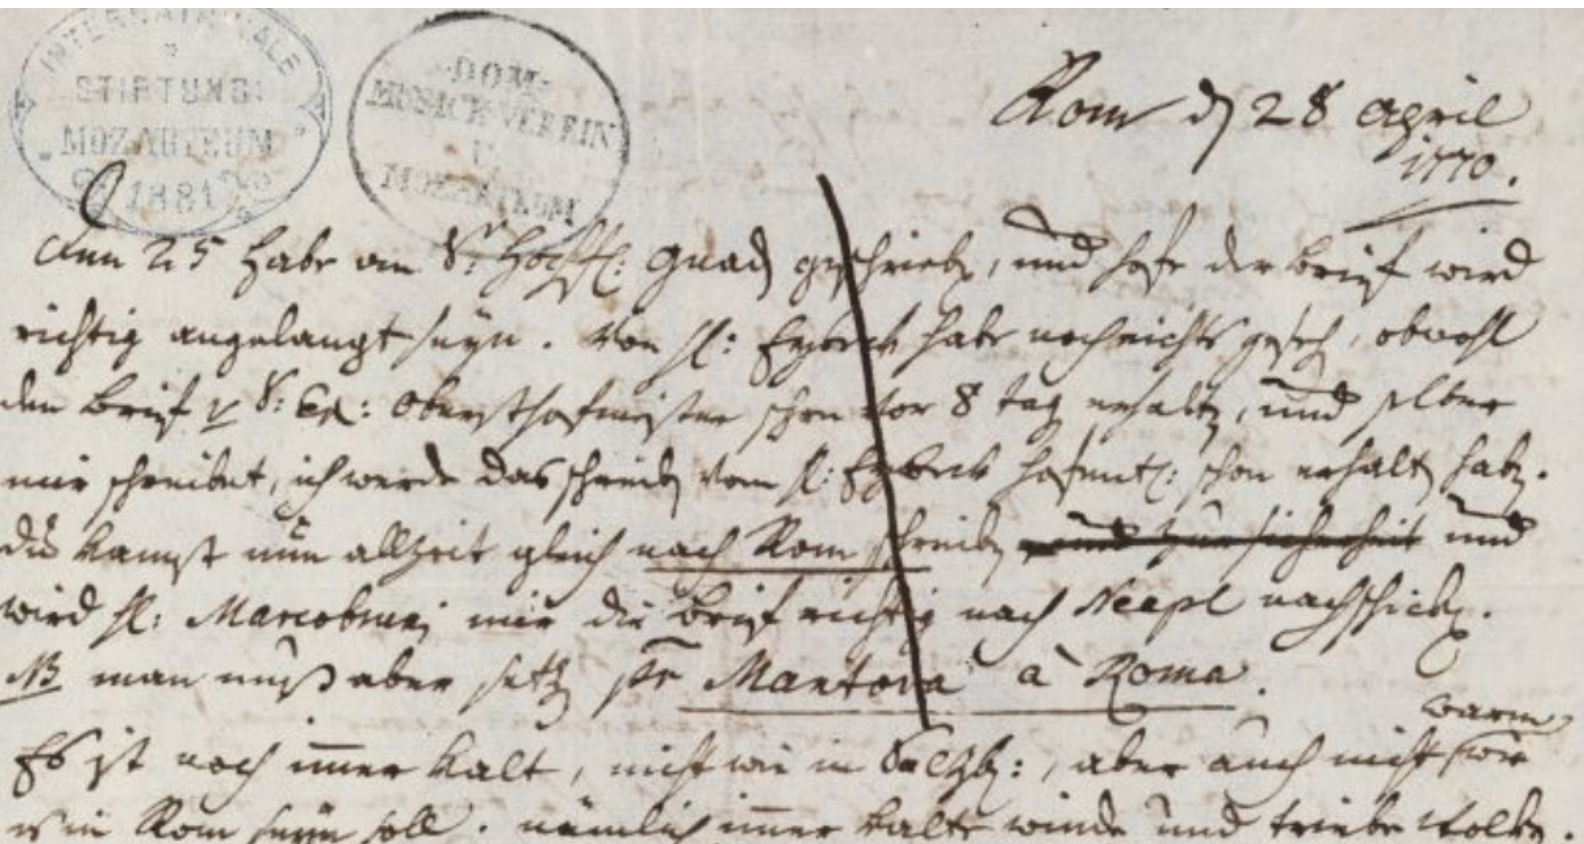 INTERNATIONALE
STIFTUNG:
MOZARTEUM
1881
DOM-
MUSICK-VEREIN
U.
MOZARTEUM
Rom den 28 April
1770.
den 25 habe an Sr: Hochfl: gnaden geschrieben, und hofe der brief wird
richtig angelangt seyn. Von H: habe noch nichts gesehen, obwohl
den brief v S: Ex: Obersthofmeister schon vor 8 tag erhalten, und selber
mir schreibet, ich werde das schreiben vom H: schon erhalten haben.
du kannst nun allzeit gleich nach Rom schreiben und zur sicherheit und
wird H: Marcobruni mir die brief richtig nach Neapl nachschicken.
NB man muß aber setzen pr Mantova à Roma.
Es ist noch immer kalt, nicht wie in Salzb:, aber auch nicht so warm wie
es in Rom seyn soll. nämlich immer kalte winde und triebe Wolken.